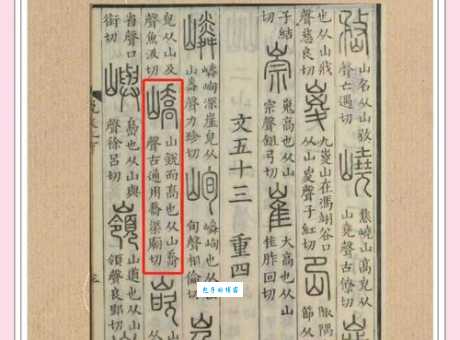 山名从山
聲古遇切
嶢
焦嶢山高皃从
山堯聲古僚切
也从山戕
聲慈良切
嵏
九嵏山在馮翊谷口
从山嵏聲子紅切
岊
陬隅
節从
子結
切
崇
嵬高也从山
宗聲鉏弓切
崔
大高也从山
隹胙回切
文五十三 重四
嶙
嶙峋深崖皃从
山粦聲力珍切
峋
嶙峋也从山
旬聲相倫切
岌
皃从山及
聲魚汲切
嶠
山銳而高也从山喬
聲古通用喬渠廟切
嵌
省聲口
銜切
嶼
島也从山與
聲徐呂切
嶺
山道也从山
領聲良郢切